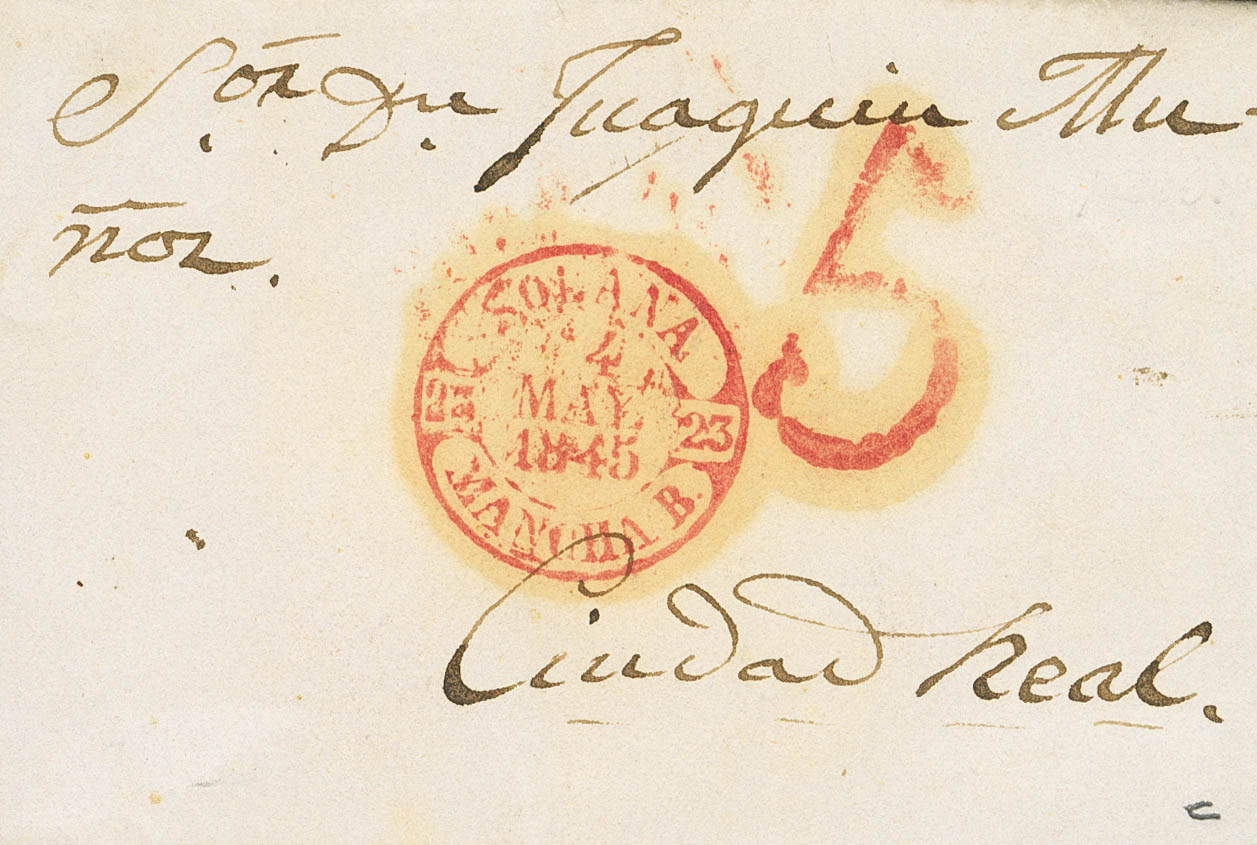 S.ór Dn. Juaquin Mu-
ñoz.
SOLANA
4
MAY
1845
23
MANCHA B.
5
Ciudad Real.